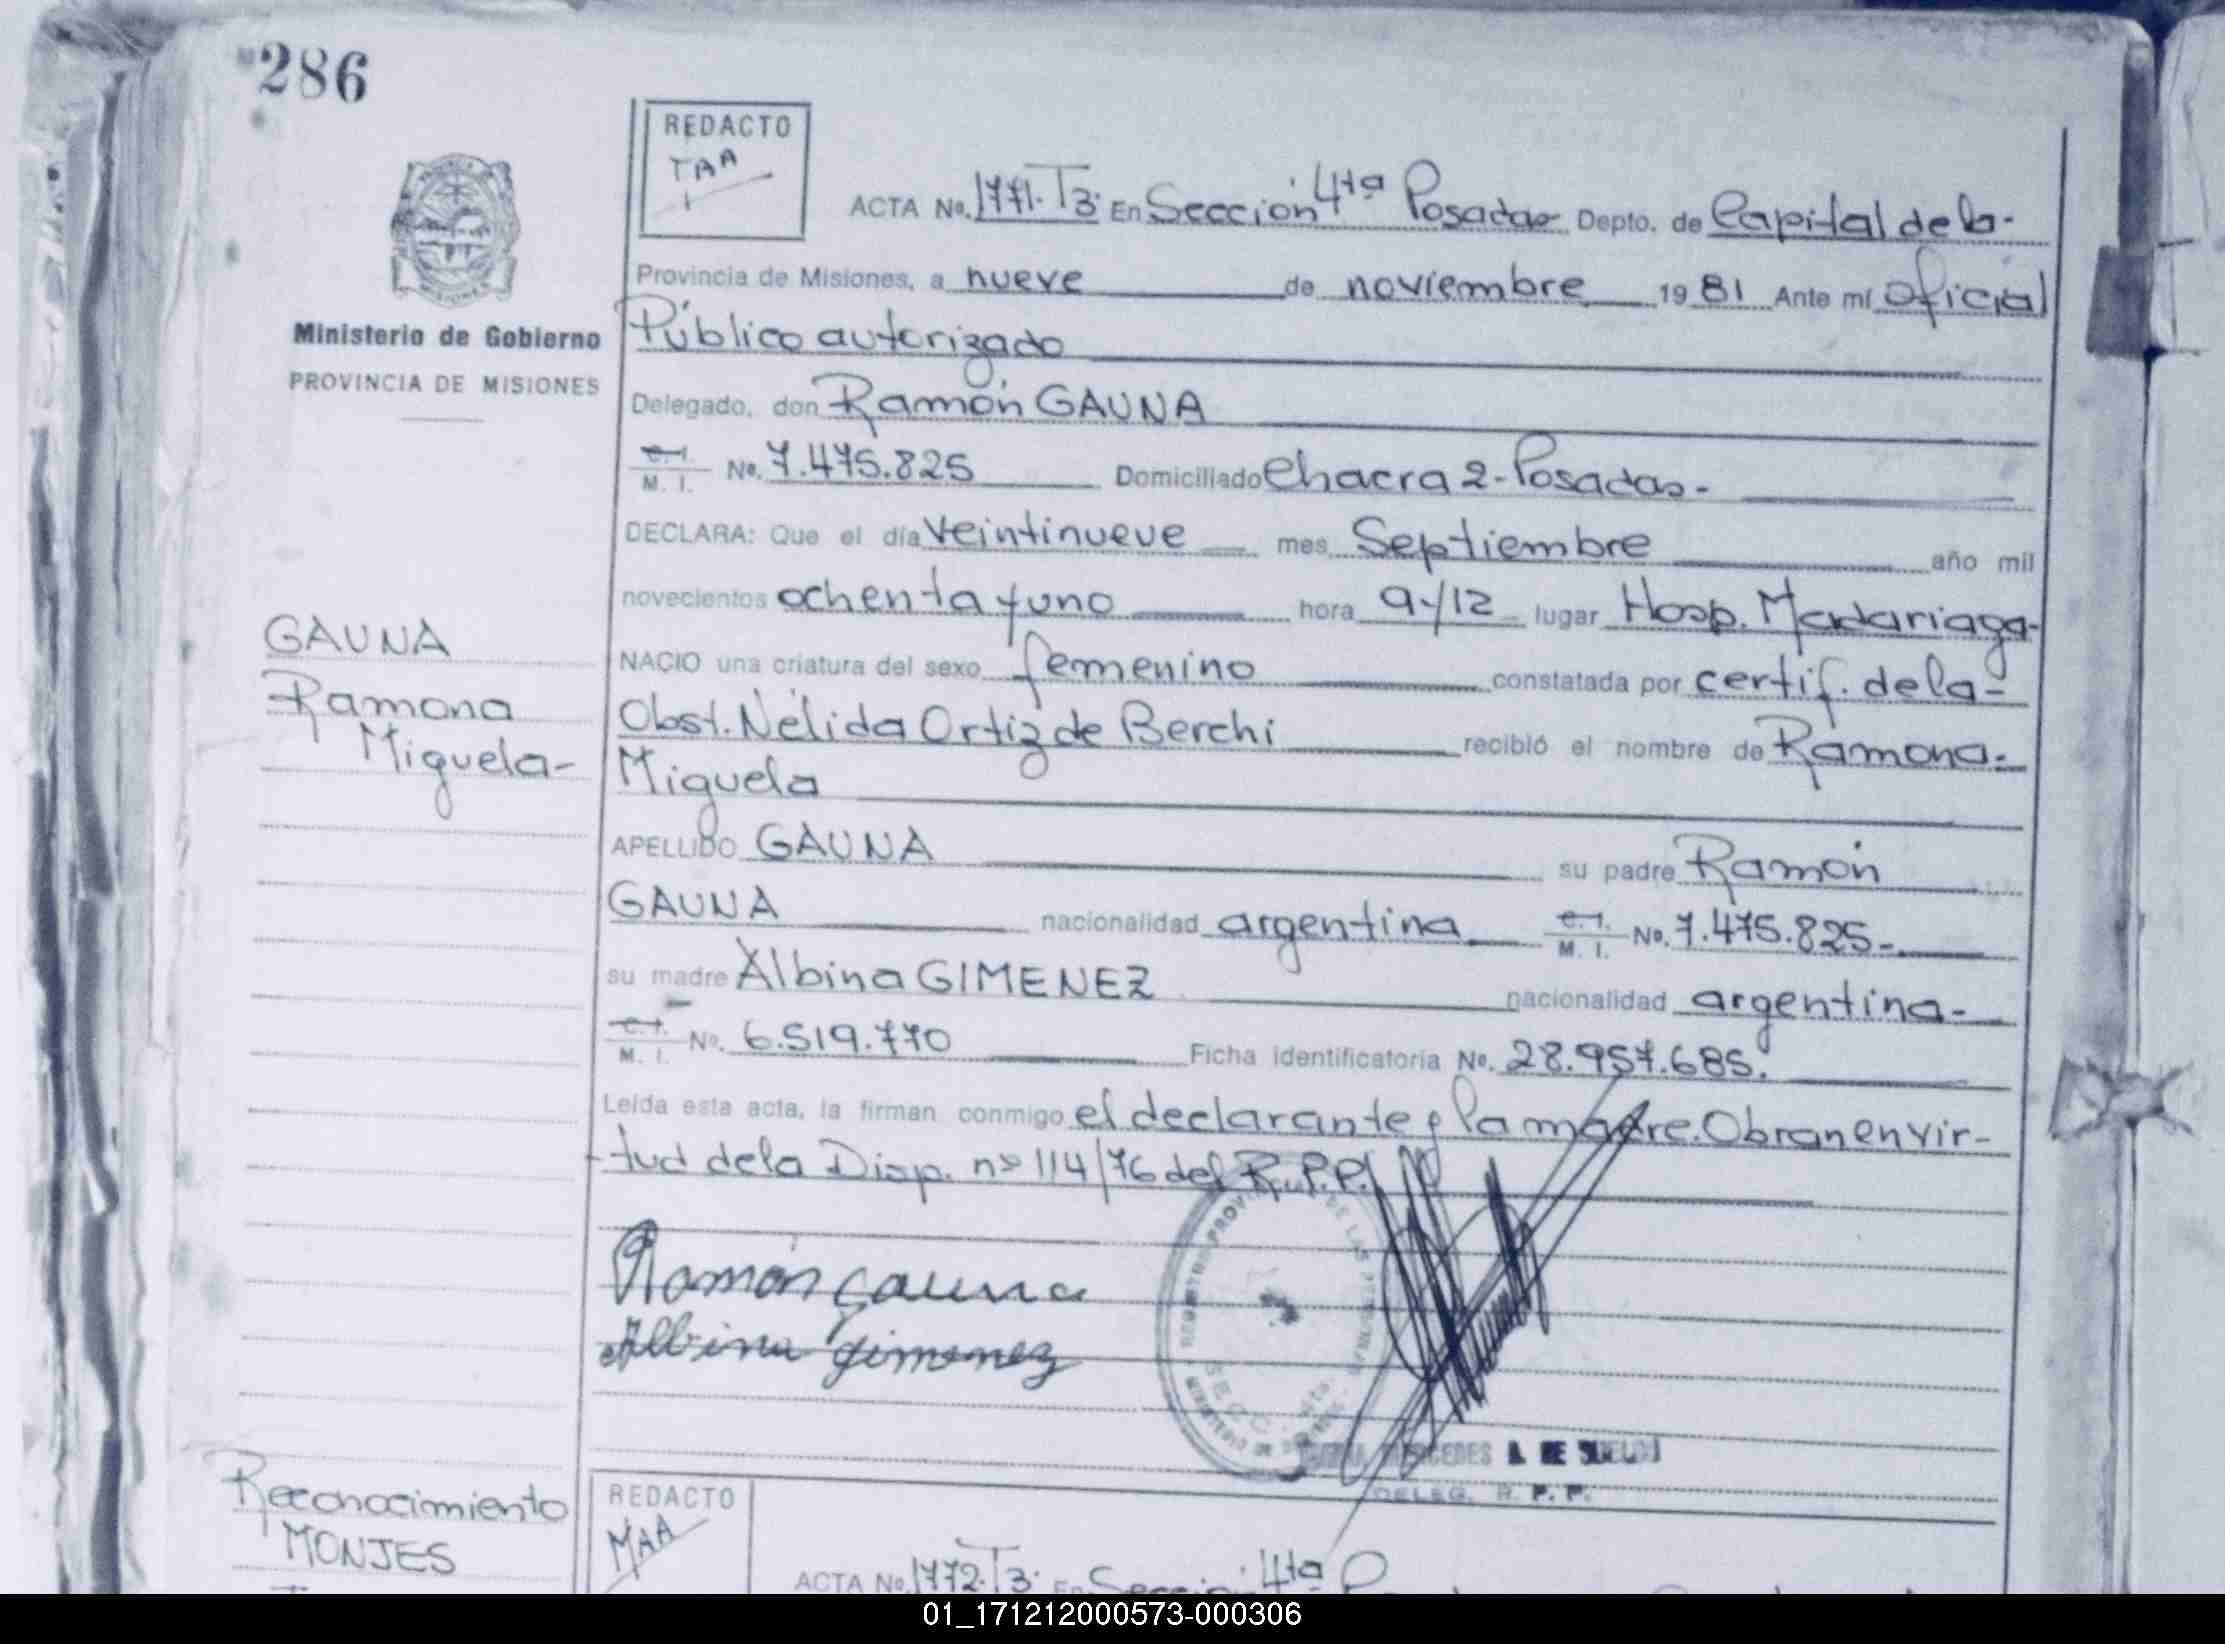 286
REDACTO
TAA
ACTA No. 1771. T3. En Sección 4ta Posadas Depto. de Capital de la-
Provincia de Misiones, a nueve de noviembre 19 81 Ante mí Oficial
Ministerio de Gobierno
Público autorizado
PROVINCIA DE MISIONES
Delegado, don Ramón GAUNA
C. I. M. I. No. 7.475.825 Domiciliado Chacra 2-Posadas-
DECLARA: Que el día veintinueve mes Septiembre año mil
novecientos ochenta y uno hora 9-/12 lugar Hosp. Madariaga-
GAUNA
NACIO una criatura del sexo femenino constatada por certif. de la-
Ramona
Obst. Nélida Ortiz de Berchi recibió el nombre de Ramona-
Miguela-
Miguela
APELLIDO GAUNA su padre Ramón
GAUNA nacionalidad argentina C. I. M. I. No. 7.475.825-
su madre Albina GIMENEZ nacionalidad argentina-
C. I. M. I. No. 6.519.770 Ficha identificatoria No. 28.957.685.
Leída esta acta, la firman conmigo el declarante y la madre. Obran en vir-
tud de la Disp. nº 114/76 del R.P.P.
Ramón Gauna
Albina Gimenez
MERCEDES A. DE
DELEG. R. P. P.
Reconocimiento
MONJES
REDACTO
MAA
ACTA No. 1772. T3. En Sección 4ta
01_171212000573-000306